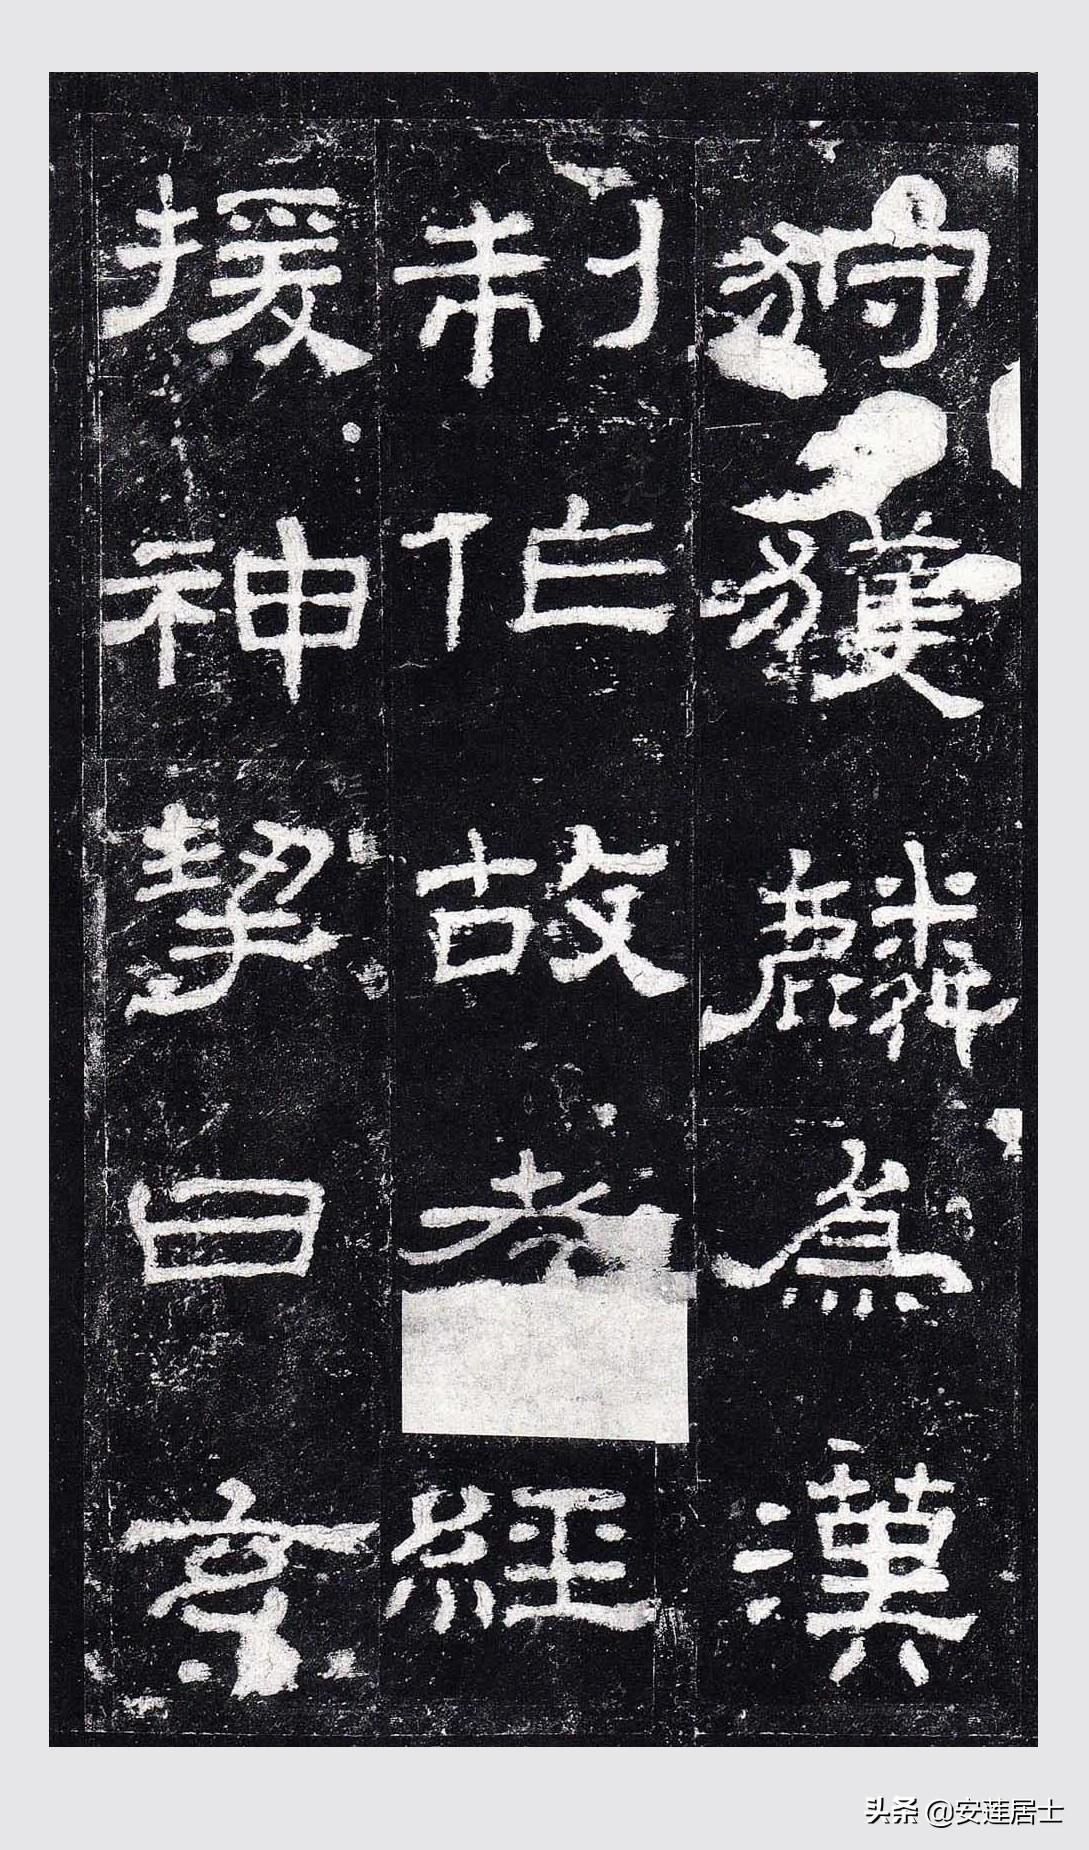 狩獲麟為漢
制作故孝經
援神挈曰玄
头条 @安莲居士